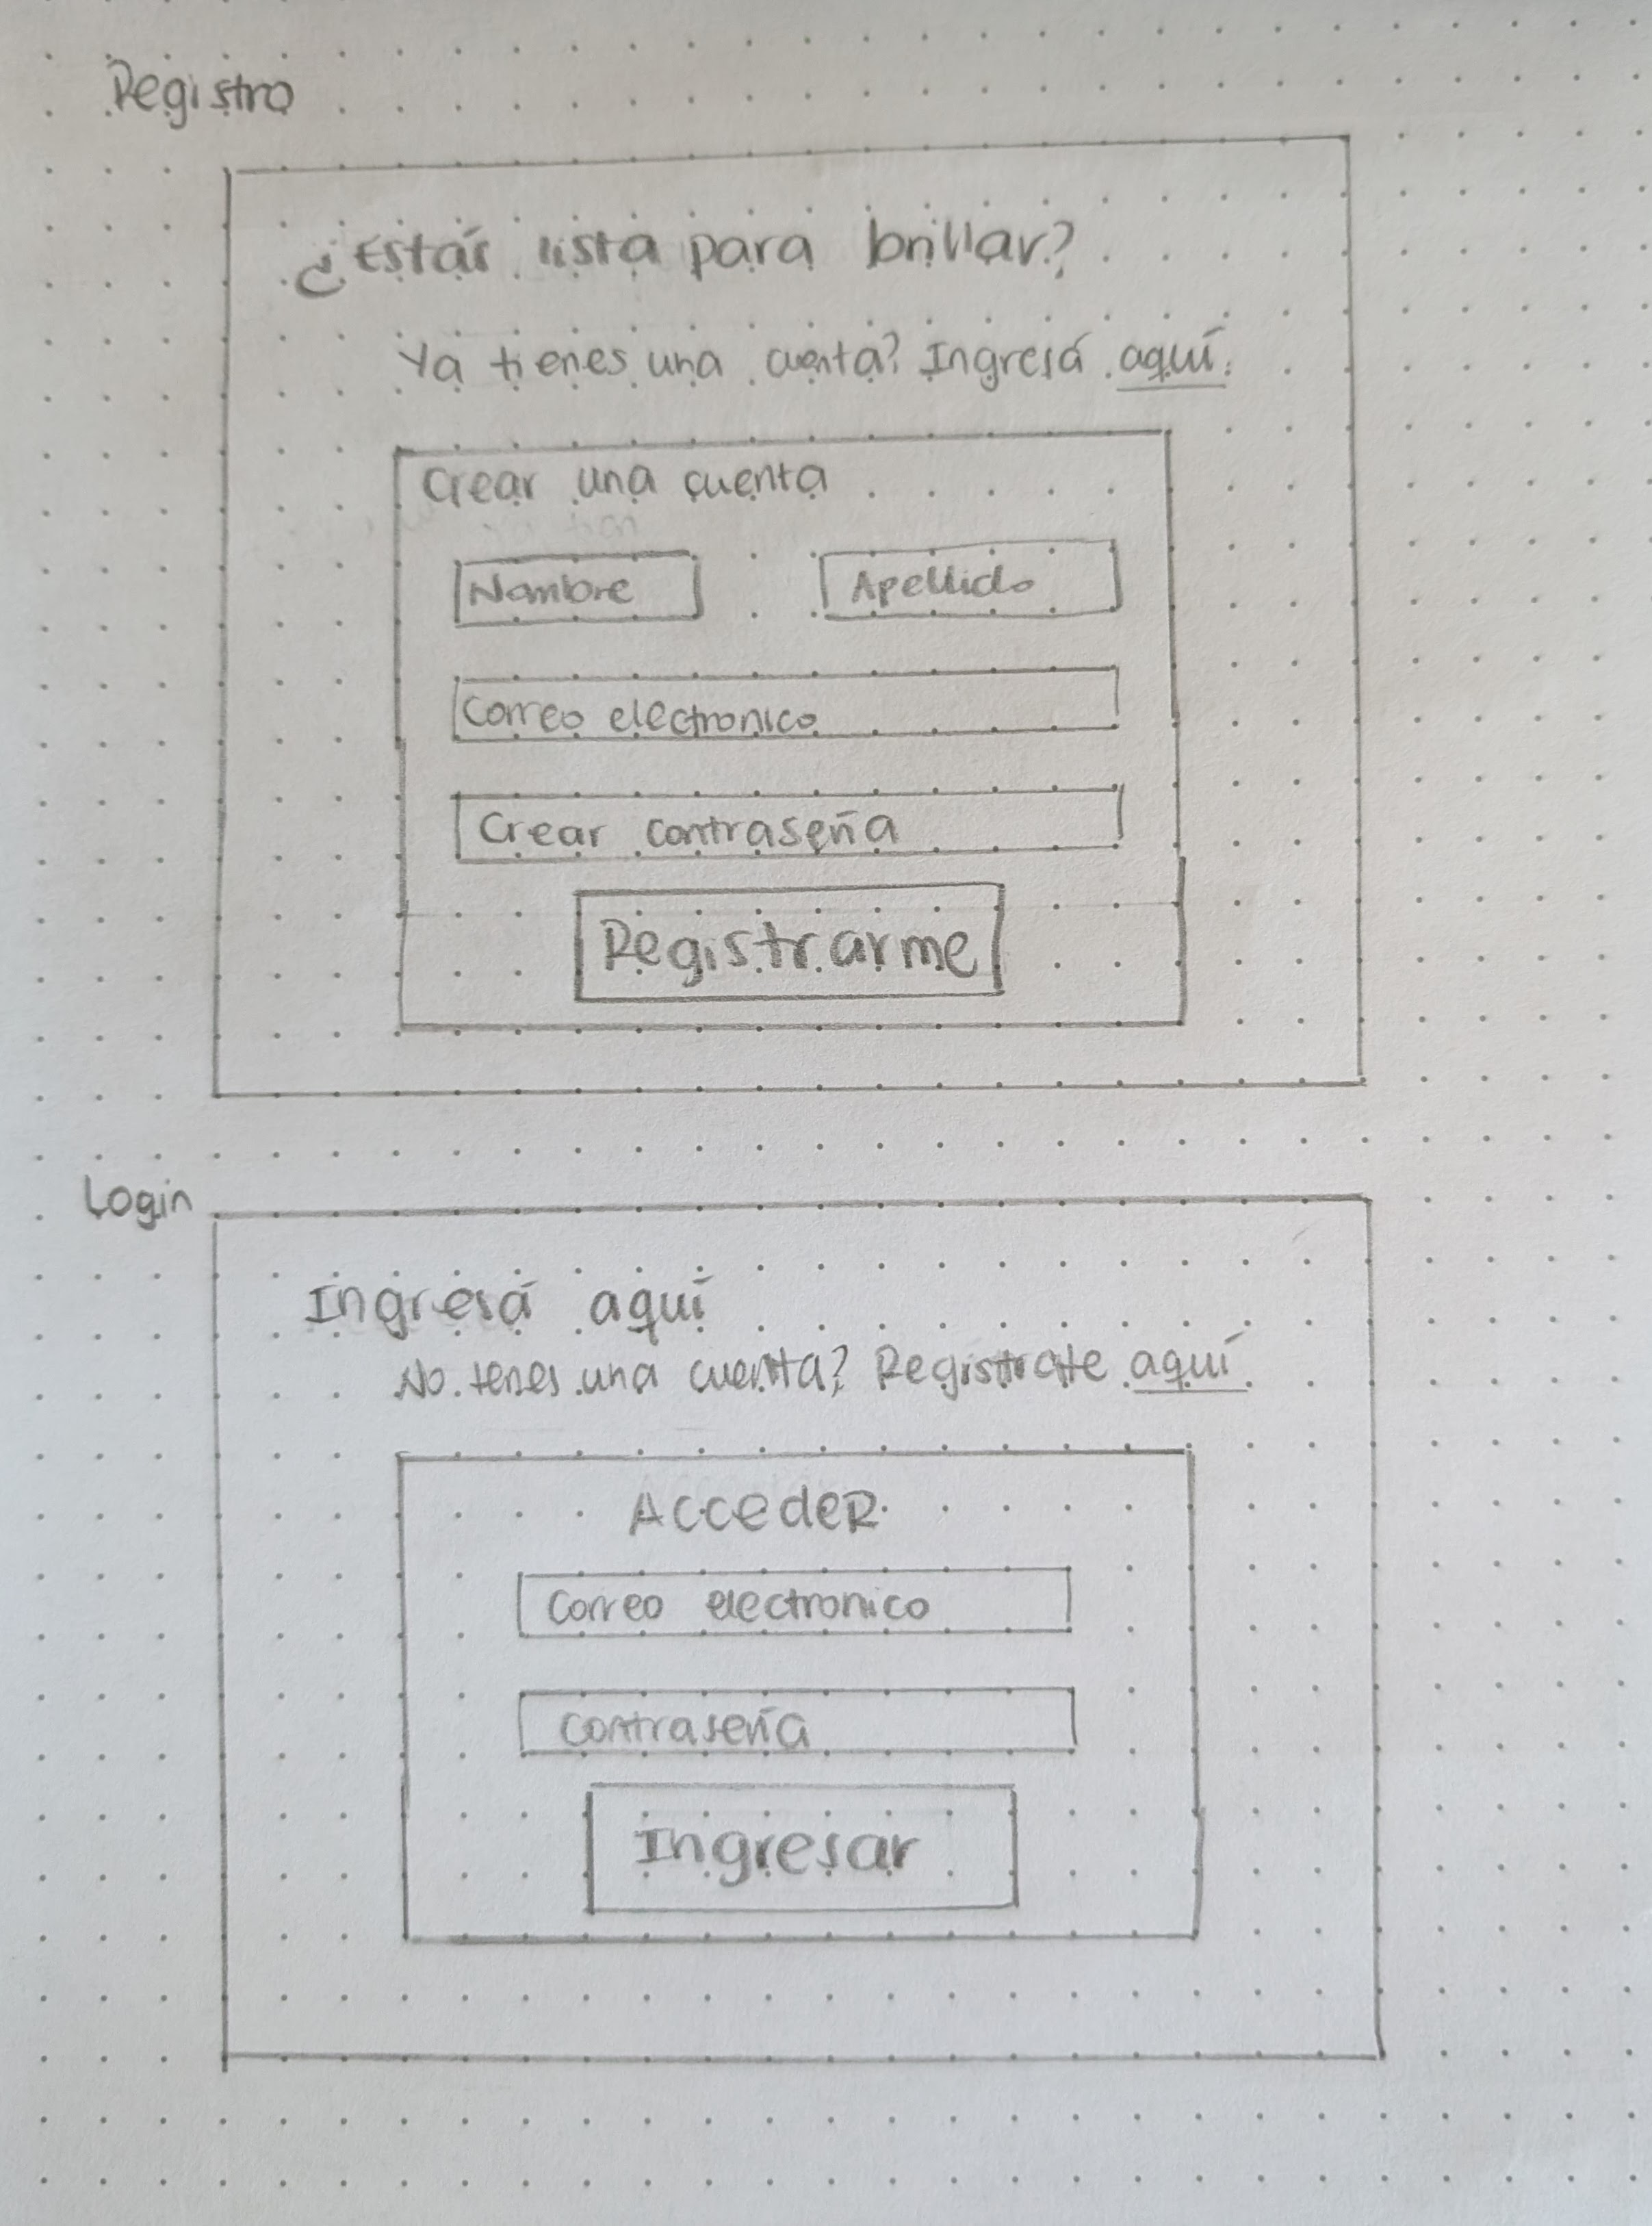 Registro
¿Estás lista para brillar?
Ya tienes una cuenta? Ingresá aquí.
Crear una cuenta
Nombre Apellido
Correo electronico
Crear contraseña
Registrarme
Login
Ingresá aquí
No tenes una cuenta? Registrate aquí.
AccedeR
Correo electronico
Contraseña
Ingresar